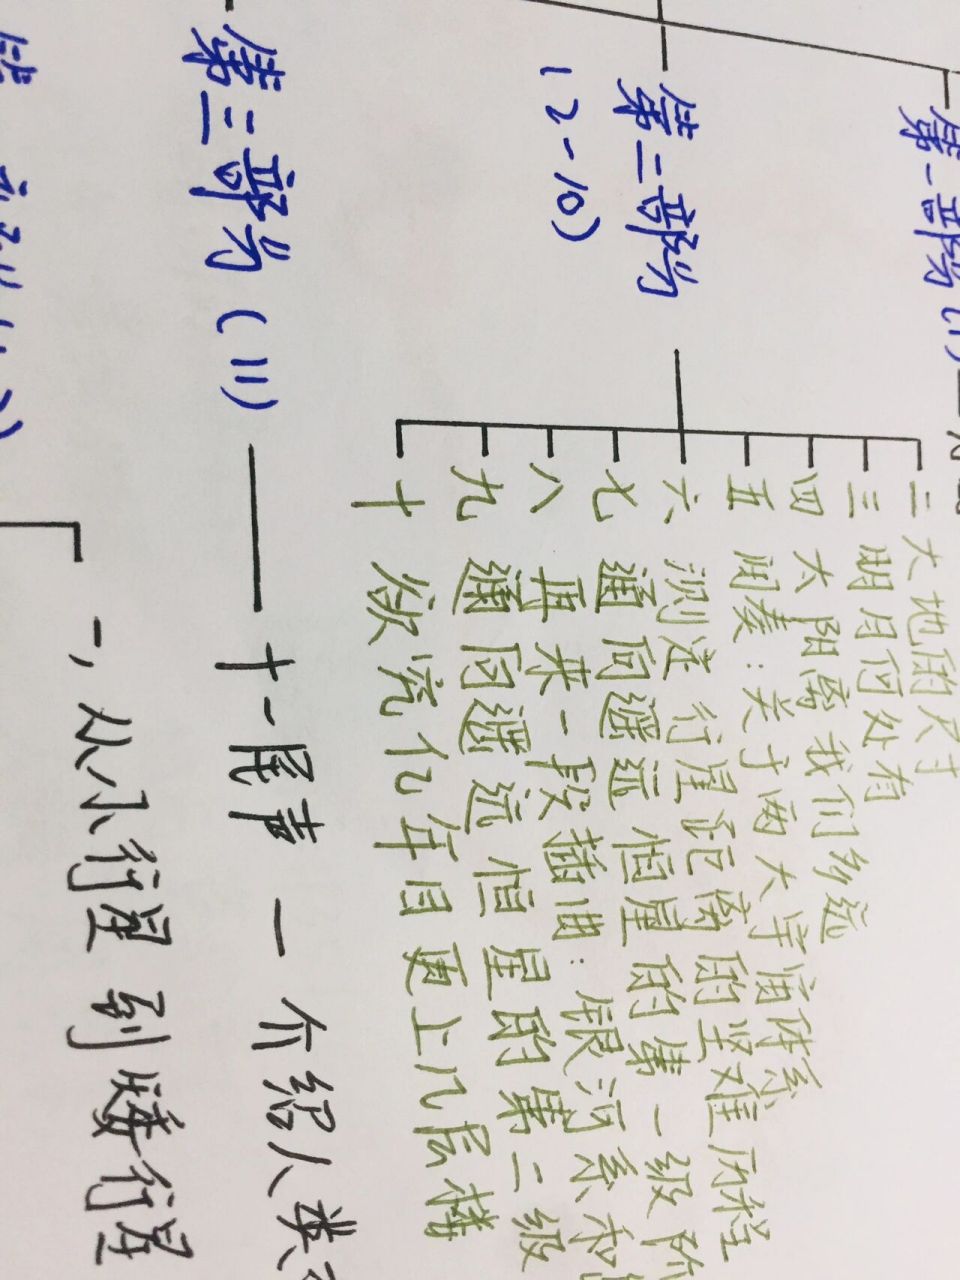 第一部分(1)
第二部分
(2-10)
二 大地的尺寸
三 明月何处有
四 太阳离我们多远
五 间奏:关于两大宇宙体系
六 测定行星距离的坚难历程
七 通向遥远恒星的第一级阶
八 再来一段插曲:银河系和
九 通向遥远恒星的第二级
十 欲穷亿年目更上几层楼
第三部分(11)
十一尾声 — 介绍人类
一,从小行星到矮行星